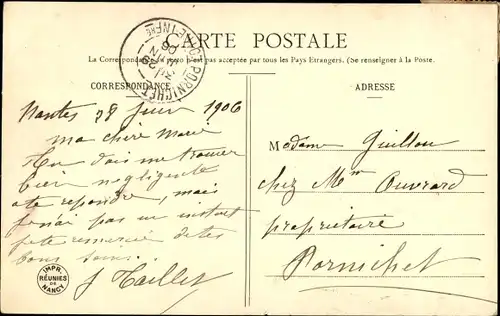 CARTE POSTALE
La Correspondance au recto n'est pas acceptée par tous les Pays Etrangers. (Se renseigner à la Poste.
CORRESPONDANCE
ADRESSE
PORNICHET
Nantes 28 Juin 1906
ma chère Marie
Tu dois me trouver
bien negligente
de repondre, mais
je n'ai pas un instant
je te remercie de tes
bons
J Haillet
Madame Guillou
chez Mm Ouvrard
propriétaire
Pornichet
IMPR.
RÉUNIES
DE
NANCY